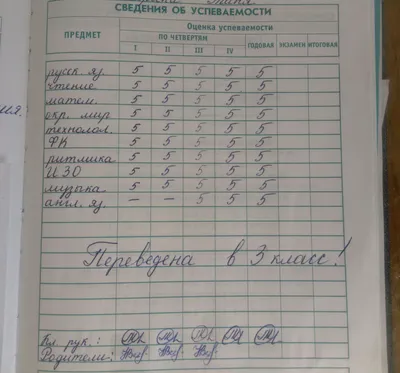 СВЕДЕНИЯ ОБ УСПЕВАЕМОСТИ
ПРЕДМЕТ
Оценка успеваемости
ПО ЧЕТВЕРТЯМ ГОДОВАЯ ЭКЗАМЕН ИТОГОВАЯ
I II III IV
русск. яз. 5 5 5 5 5
чтение 5 5 5 5 5
матем. 5 5 5 5 5
окр. мир 5 5 5 5 5
технолог. 5 5 5 5 5
ФК 5 5 5 5 5
ритмика 5 5 5 5 5
ИЗО 5 5 5 5 5
музыка 5 5 5 5 5
англ. яз. — — 5 5 5
Переведена в 3 класс!
Кл. рук.:
Родители: